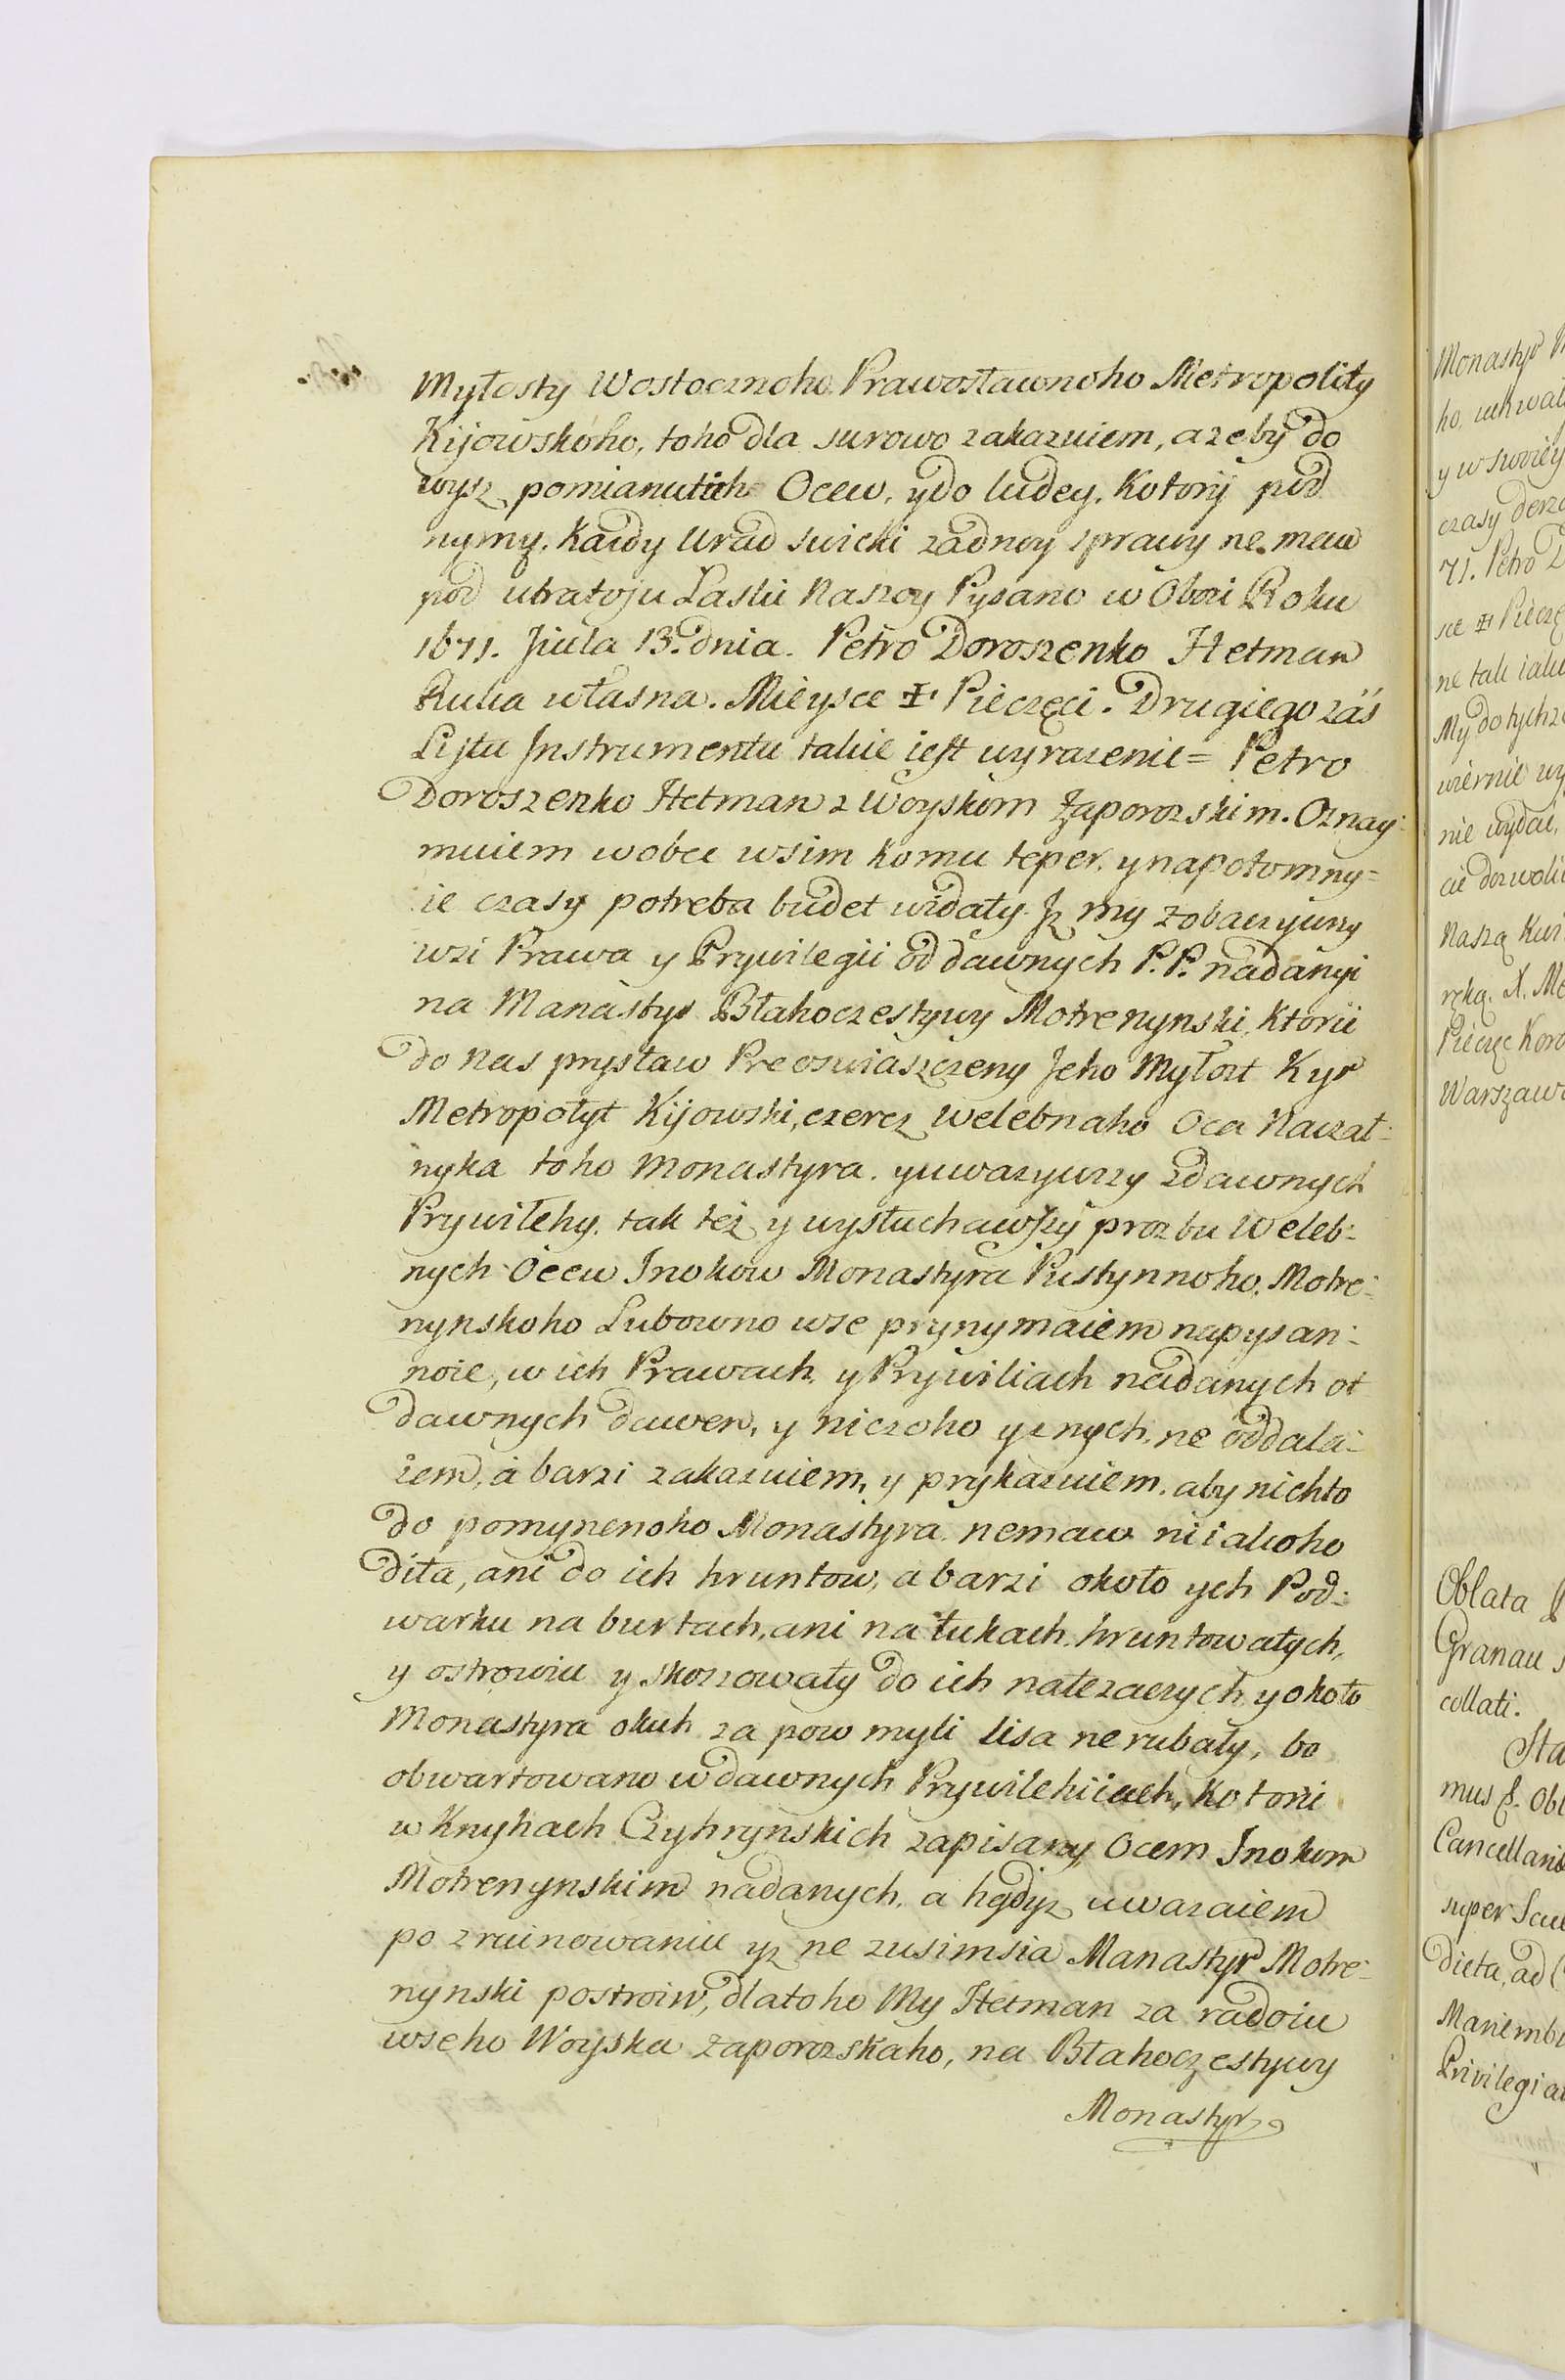 Myłosty Wostocznoho Prawosławnoho Metropolity
Kijowskoho, toho dla surowo zakazuiem, azeby do
wysz pomianutich Ocew, y do ludey, Kotoryi pod
nymy, Kazdy Urad swicki zadnoy sprawy ne mew
pod utratoju Laski Naszoy Pysano w Obozi Roku
1671. Jiula 13. dnia. Petro Doroszenko Hetman
Ruka własna. Mieysce Pieczęci. Drugiego zaś
Listu Instrumentu takie iest wyrazenie = Petro
Doroszenko Hetman z Woyskom Zaporozskim. Oznay:
muiem wobec wsim komu teper, y napotomny=
ie czasy potreba budet widaty. Iz my zobaczywszy
wsi Prawa y Prywilegii od dawnych P.P. nadanyi
na Manastyr Błahoczestywy Motrenynski, Ktorii
do nas prysław Preoswiaszczeny Jeho Myłost Kyr
Metropołyt Kijowski, czerez welebnaho Oca Naczał:
nyka toho Monastyra. y uwazywszy zdawnych
Prywilehy, tak też y wysłuchawszy prozbu Weleb:
nych Ocew Inokow Monastyra Pustynnoho, Motre:
nynskoho Lubowno wse prynymaiem napysan:
noie, w ich Prawach, y Prywiliach nadanych ot
dawnych dawen, y niczoho yznych, ne oddala:
iem, a barzi zakazuiem, y prykazuiem, aby nichto
do pomynenoho Monastyra, nemaw niiakoho
diła, ani do ich hruntow, a barzi około ych Pod:
warku na burtach, ani na łukach, hruntowatych,
y ostrowiu y skoszowaty do ich nałezaczych, y około
Monastyra okuh za pow myli lisa ne rubały, bo
obwartowano w dawnych Prywilehiiach, Kotorii
w Knyhach Czyhrynskich zapisany, Ocem Inokom
Motrenynskim nadanych, a hędyz uwazaiem
po zruinowaniu yz ne zusimsia Manastyr Motre:
nynski postroiw, dlatoho My Hetman za radoiu
wseho Woyska Zaporozskaho, na Błahoczestywy
Monastyr
Monastyr
ho, uchwal
y w swoiey
czasy derz
71. Petro D
sce Pieczę
ne tak iak
My do tych
wiernie wy
nie wydać,
cie dozwoli
Naszą
ręką. X. Me
Pieczęć Koro
Warszaw
Oblata
Granau
collati.
Sta
mus & Obl
Cancellari
super
dicta, ad
Mariemb
Privilegia